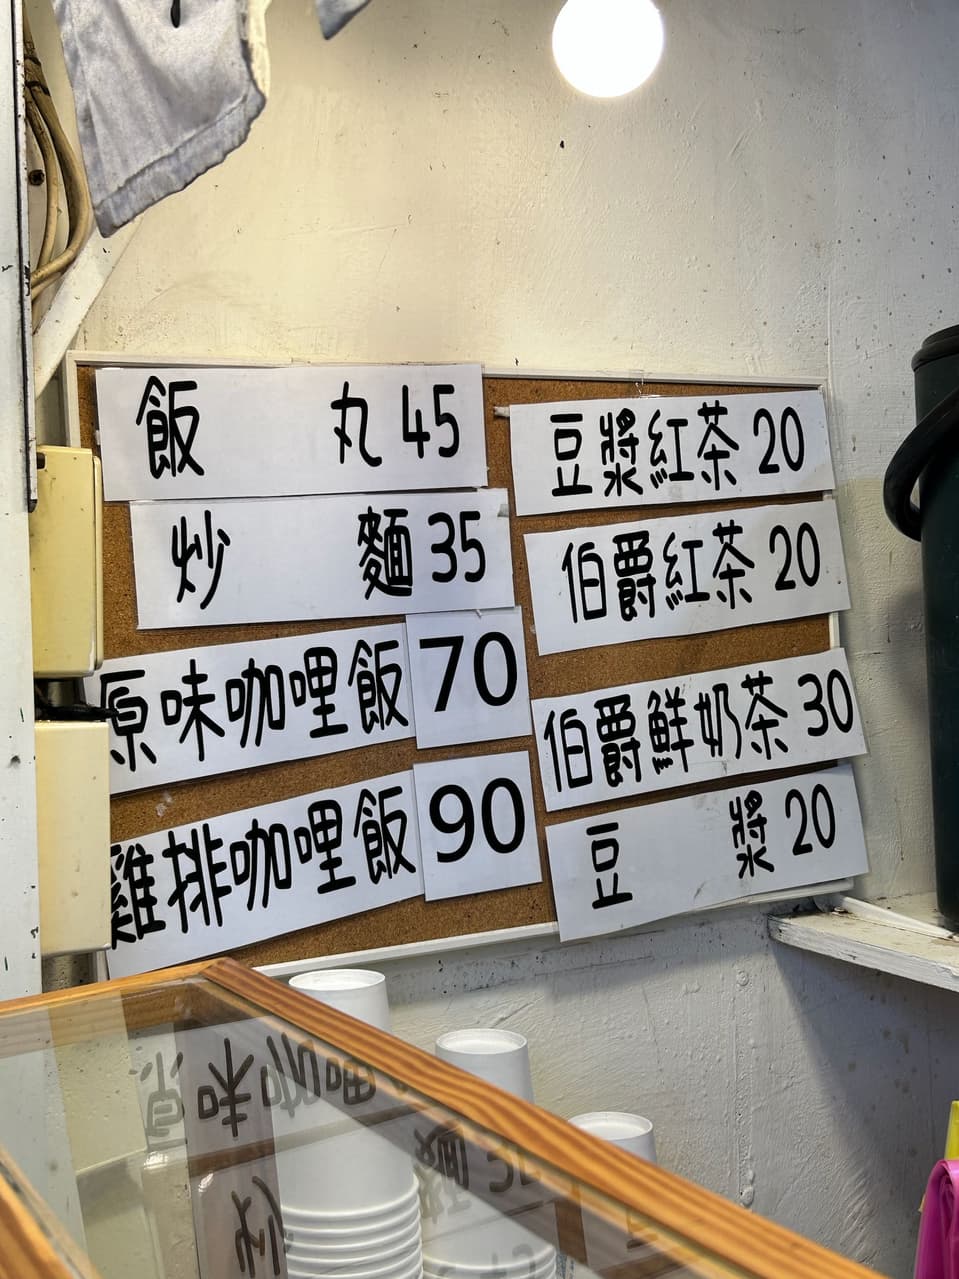 飯丸45
炒麵35
原味咖哩飯70
雞排咖哩飯90
豆漿紅茶20
伯爵紅茶20
伯爵鮮奶茶30
豆漿20